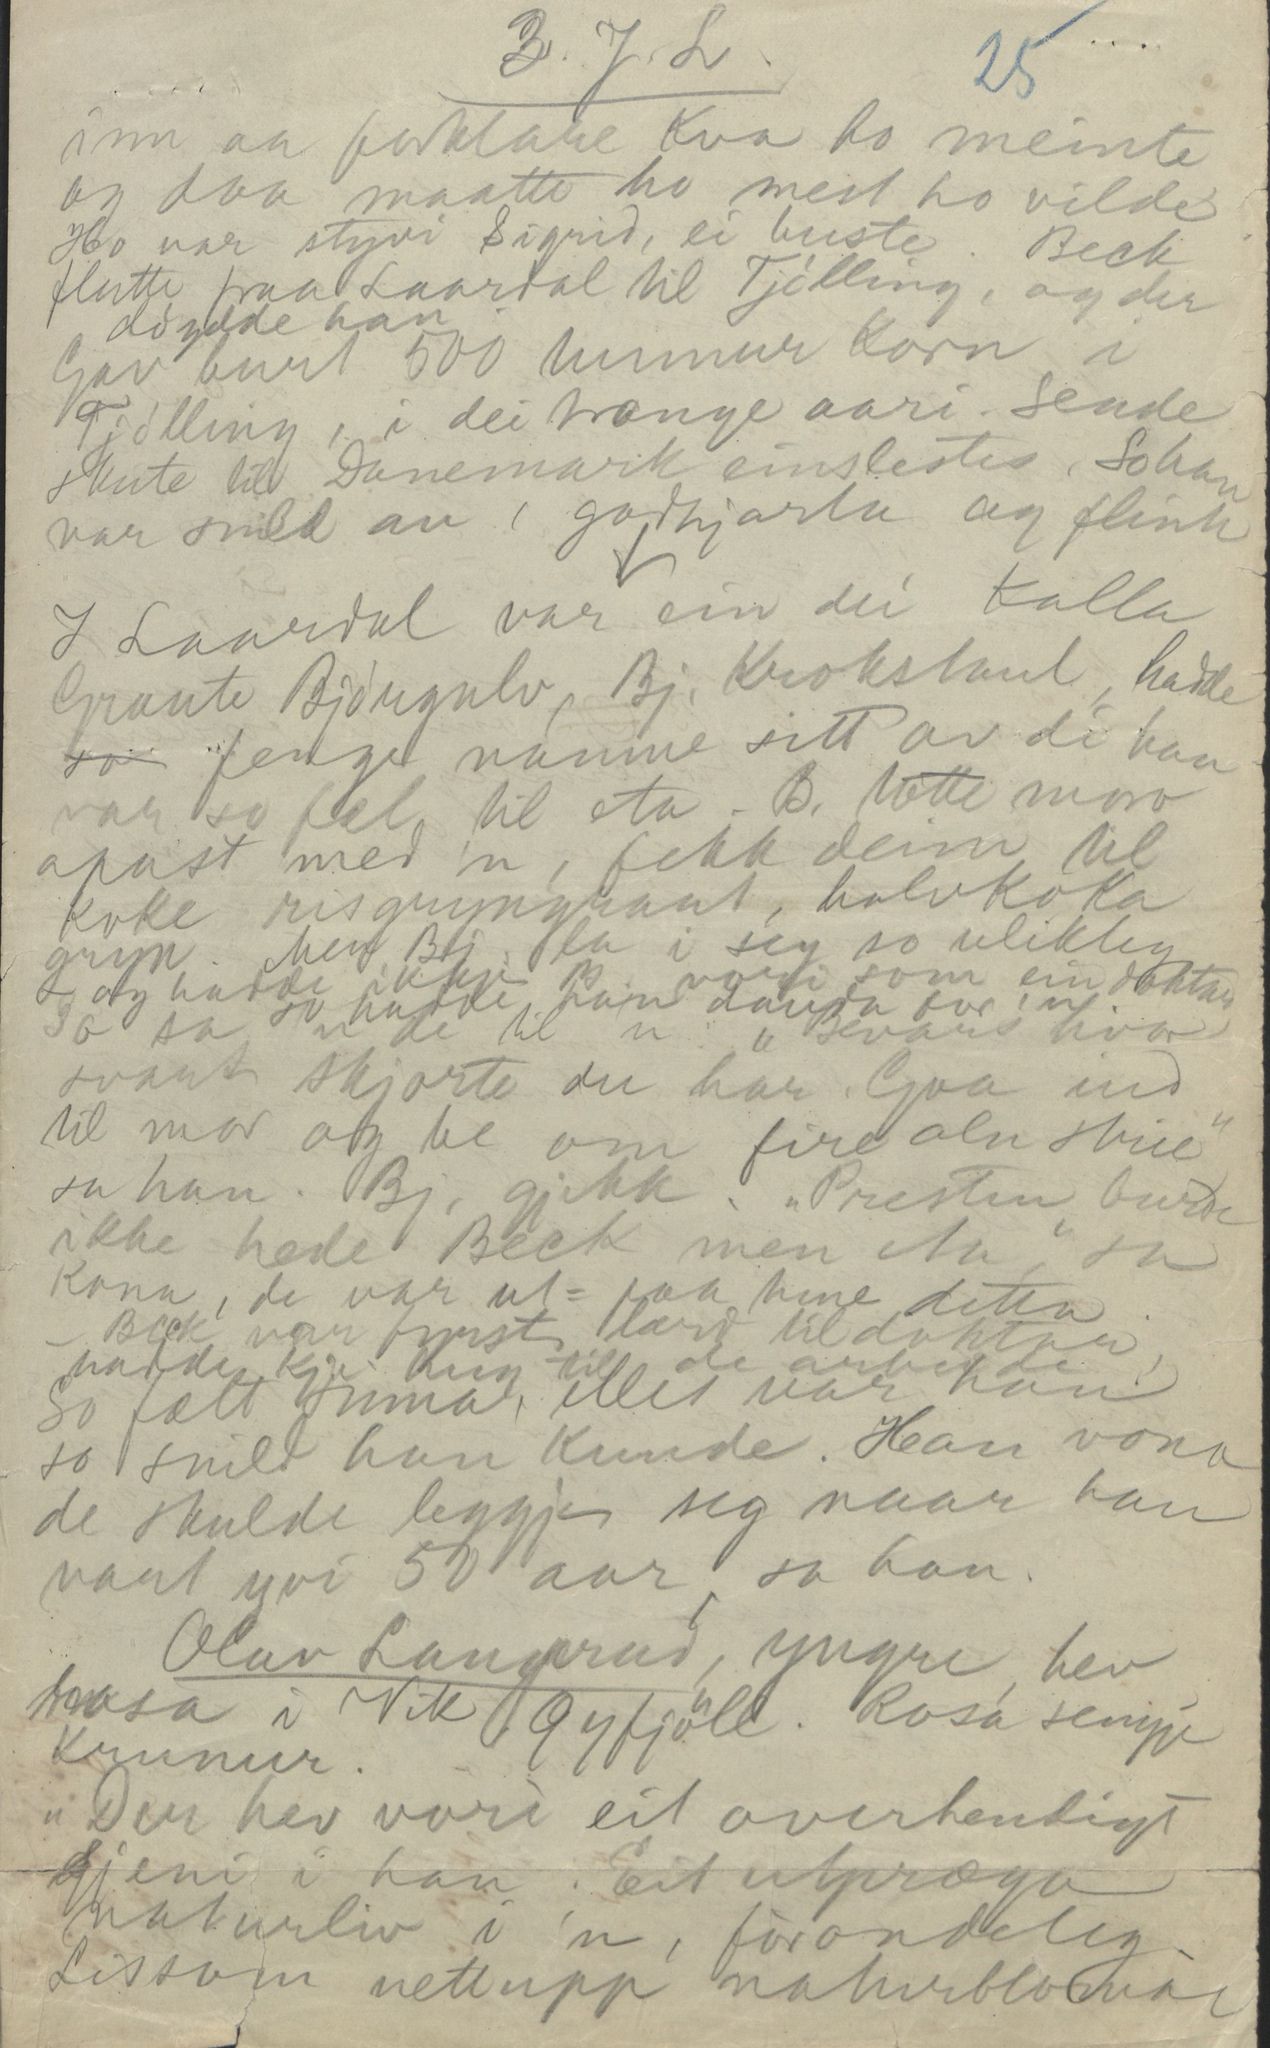 B. J. L. 25
inn aa forklare kva ho meinte
og daa maatte ho mest ho vilde
Ho var styvi Sigrid, ei buste. Beck
flutte fraa Laardal til Tjølling, og der
döydde han
Gav burt 500 tunnur korn i
Tjølling, i dei trange aari. Sende
skute til Danemark einslestes. So han
var snild au, godhjarta og flink
I Laardal var ein dei kalla
Graute Björgulv, Bj. Krokstaul, hadde
so fenge namne sitt av di han
var so fæl til eta. B. totte moro
apast med 'n, fekk deim til
koke risgryngraut, halvkoka
gryn. Men Bj. la i seg so ulikleg
og hadde ikkje B. vori som ein doktar
so hadde han dauda or 'n.
So sa 'n de til 'n "Bevars hvor
svart skjorte du har. Gaa ind
til mor og be om fire aln strie"
sa han. Bj. gjekk. "Presten burde
ikke hede Beck men Aa," sa
kona, de var ut-paa tune dette.
- Beck var fyrst lærd til doktar,
hadde kje hug til de arbeide
So fælt summa, elles var han
so snild han kunde. Han vona
de skulde leggje seg naar han
vart yvi 50 aar, sa han.
Olav Langerud, yngre, hev
rosa i Vik Øyfjöll. Rosa sengje
Krunur.
"Der hev vori eit overhendigt
sjeni i han. Eit utpræga
naturliv i 'n, forandeleg.
Lissom nettupp naturblomar